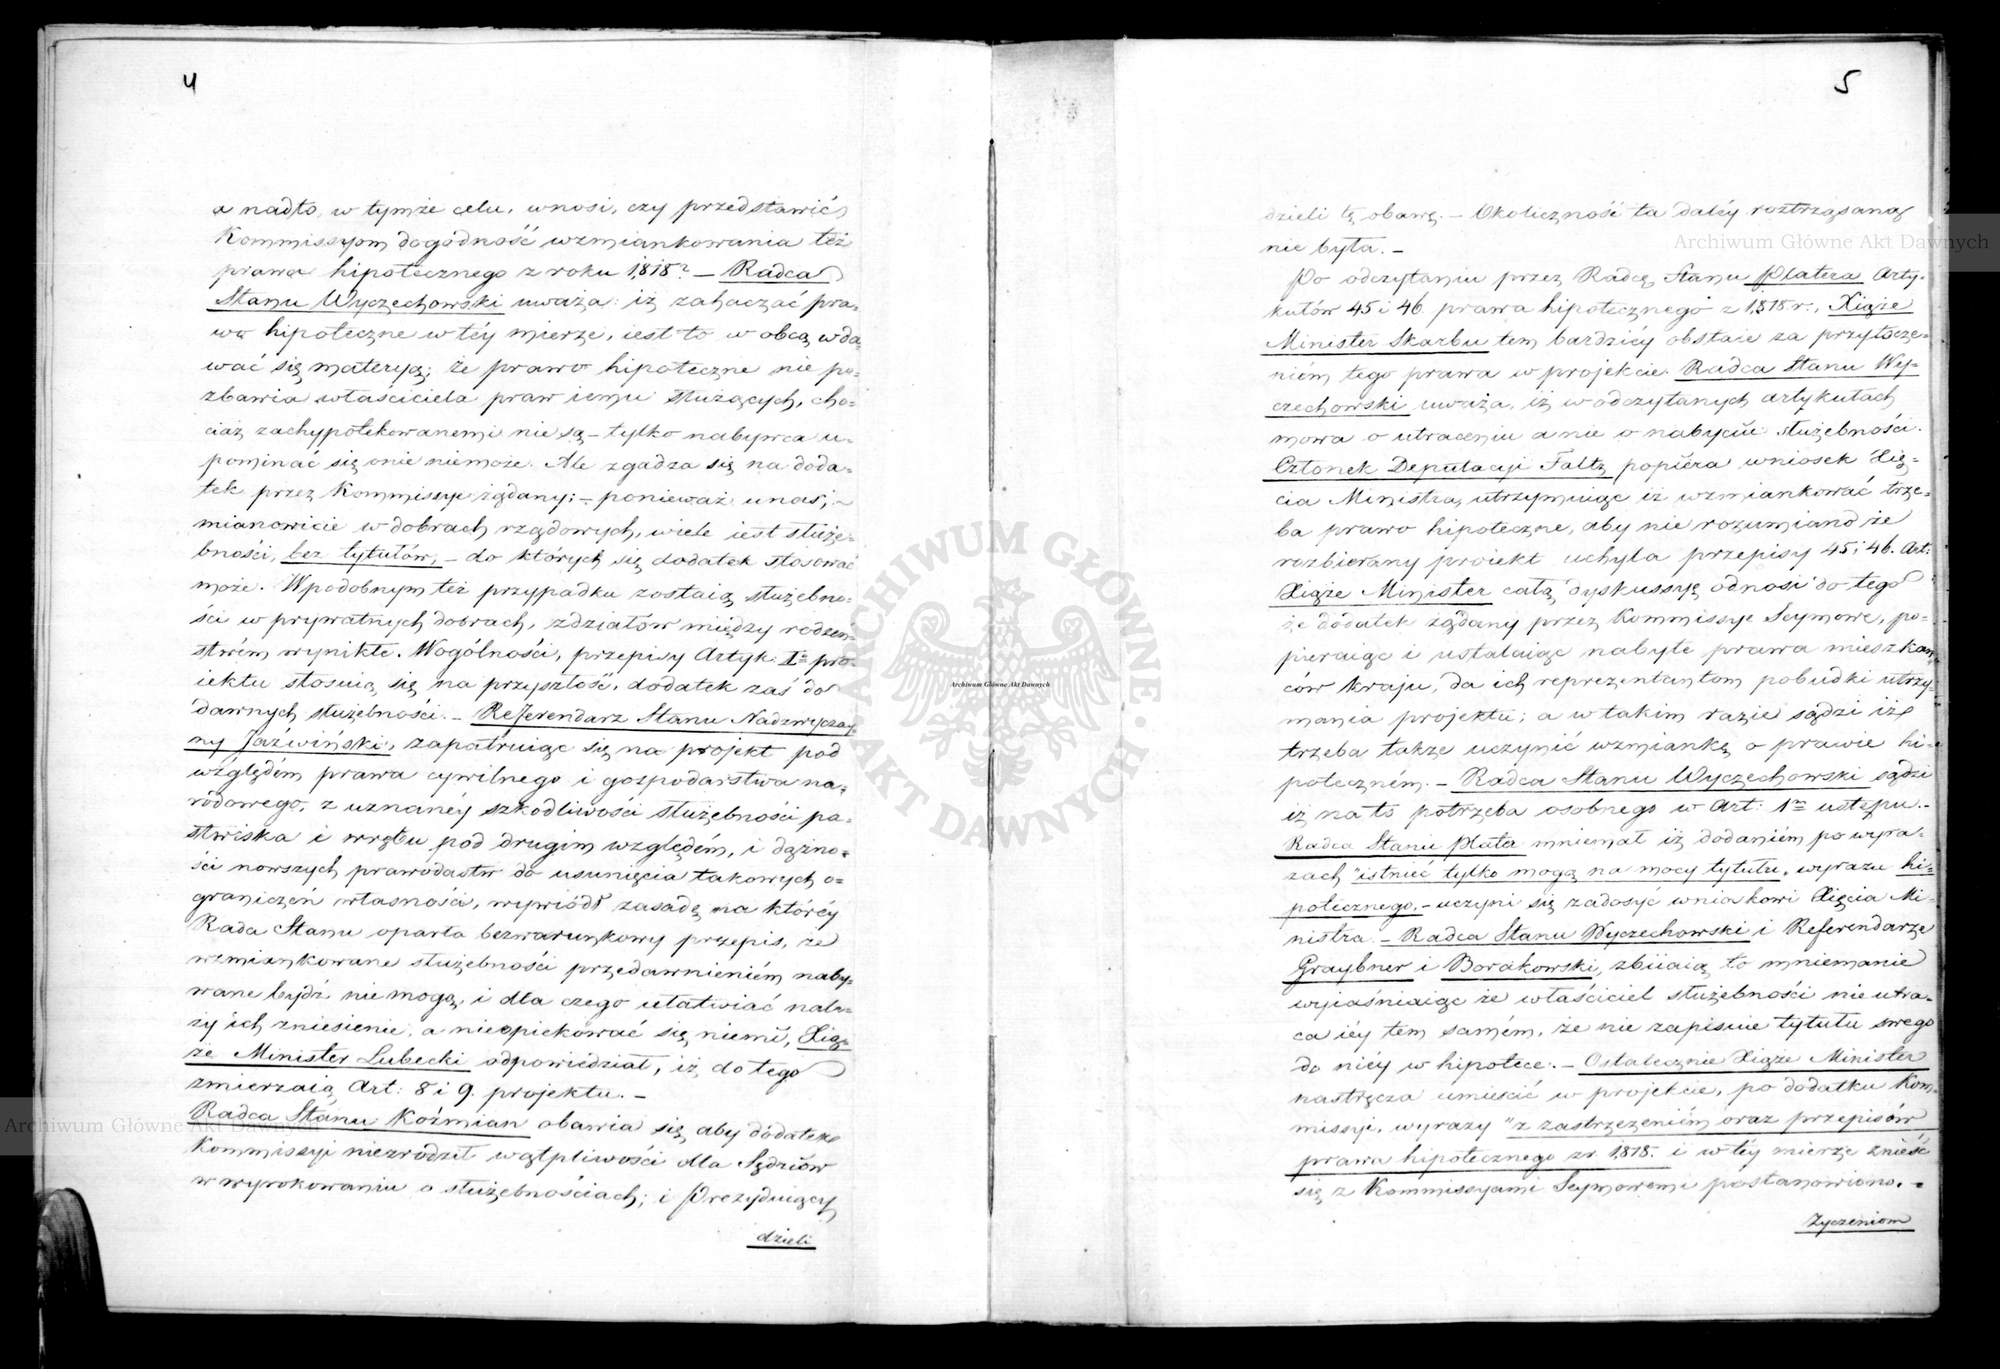 4
a nadto, w tymże celu, wnosi, czy przedstawić
Kommissyom dogodność wzmiankowania też
prawa hipotecznego z roku 1818? – Radca
Stanu Wyczechowski uważa: iż zahaczać pra-
wo hipoteczne w téy mierze, iest to w obcą wda-
wać się materyą; że prawo hipoteczne nie po-
zbawia właściciela praw iemu służących, cho-
ciaż zachypotekowanemi nie są – tylko nabywca u-
pominać się onie niemoże. Ale zgadza się na doda-
tek przez Kommissye żądany; – ponieważ u nas, –
mianowicie w dobrach rządowych, wiele iest służe-
bności, bez tytułów, – do których się dodatek stosować
może. W podobnym też przypadku zostaią służebno-
ści w prywatnych dobrach, z działów między rodzeń-
stwem wynikłe. W ogólności, przepisy Artyk: Igo pro-
iektu stosuią się na przyszłość, dodatek zaś do
dawnych służebności. – Referendarz Stanu Nadzwyczay-
ny Jaźwiński, zapatruiąc się na projekt pod
względem prawa cywilnego i gospodarstwa na-
rodowego, z uznanéy szkodliwości służebności pa-
stwiska i wrębu pod drugim względem, i dążno-
ści nowszych prawodastw do usunięcia takowych o-
graniczeń własności, wywiódł zasadę na któréy
Rada Stanu oparła bezwarunkowy przepis, że
wzmiankowane służebności przedawnieniem naby-
wane bydź nie mogą, i dla czego ułatwiać nale-
ży ich zniesienie, a nieopiekować się niemi, Xią-
że Minister Lubecki odpowiedział, iż do tego
zmierzaią Art: 8 i 9. projektu. –
Radca Stanu Koźmian obawia się, aby dodatek
Kommissyi niezrodził wątpliwości dla Sędziów
w wyrokowaniu o służebnościach; i Prezyduiący
dzieli
5
dzieli tę obawę. – Okoliczność ta daléy roztrząsaną
nie była. –
Po odczytaniu przez Radcę Stanu Platera Arty-
kułów 45 i 46 prawa hipotecznego z 1818 r., Xiąże
Minister Skarbu tem bardziéy obstaie za przytocze-
niem tego prawa w projekcie. Radca Stanu Wy-
czechowski uważa, iż w odczytanych artykułach
mowa o utraceniu a nie o nabyciu służebności.
Członek Deputacyi Faltz popiera wniosek Xię-
cia Ministra, utrzymuiąc iż wzmiankować trze-
ba prawo hipoteczne, aby nie rozumiano że
rozbierany proiekt uchyla przepisy 45 i 46. Art:
Xiąże Minister całą dyskussyę odnosi do tego
że dodatek żądany przez Kommissye Seymowe, po-
pieraiąc i ustalaiąc nabyte prawa mieszkań-
ców kraju, da ich reprezentantom pobudki utrzy-
mania projektu; a w takim razie sądzi iż
trzeba także uczynić wzmiankę o prawie hi-
potecznem. – Radca Stanu Wyczechowski sądzi
iż na to potrzeba osobnego w Art: 1m ustępu. –
Radca Stanu Plater mniemał iż dodaniem po wyra-
zach "istnieć tylko mogą na mocy tytułu" wyrazu hi-
potecznego, – uczyni się zadosyć wnioskowi Xięcia Mi-
nistra. – Radca Stanu Wyczechowski i Referendarze
Graybner i Borakowski, zbiiaią to mniemanie
wyiaśniaiąc że właściciel służebności nie utra-
ca iéy tem samém, że nie zapisuie tytułu swego
do niéy w hipotece. – Ostatecznie Xiąże Minister
nastręcza umieścić w projekcie, po dodatku Kom-
missyi, wyrazy "z zastrzeżeniem oraz przepisów
prawa hipotecznego z r. 1818. i w téy mierze znieść
się z Kommissyami Seymowemi postanowiono. –
Życzeniom
Archiwum Główne Akt Dawnych
Archiwum Główne Akt Dawnych
Archiwum Główne Akt Dawnych
ARCHIWUM GŁÓWNE AKT DAWNYCH